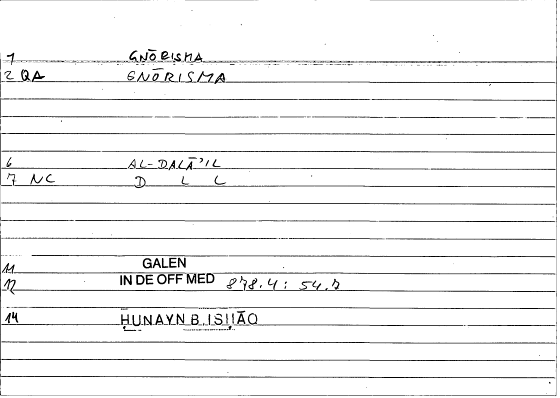 1 GNŌRISMA
2 QA GNŌRISMA
6 AL-DALĀʾIL
7 NC D L L
11 GALEN
12 IN DE OFF MED 878.4: 54.7
14 ḤUNAYN B. ISḤĀQ